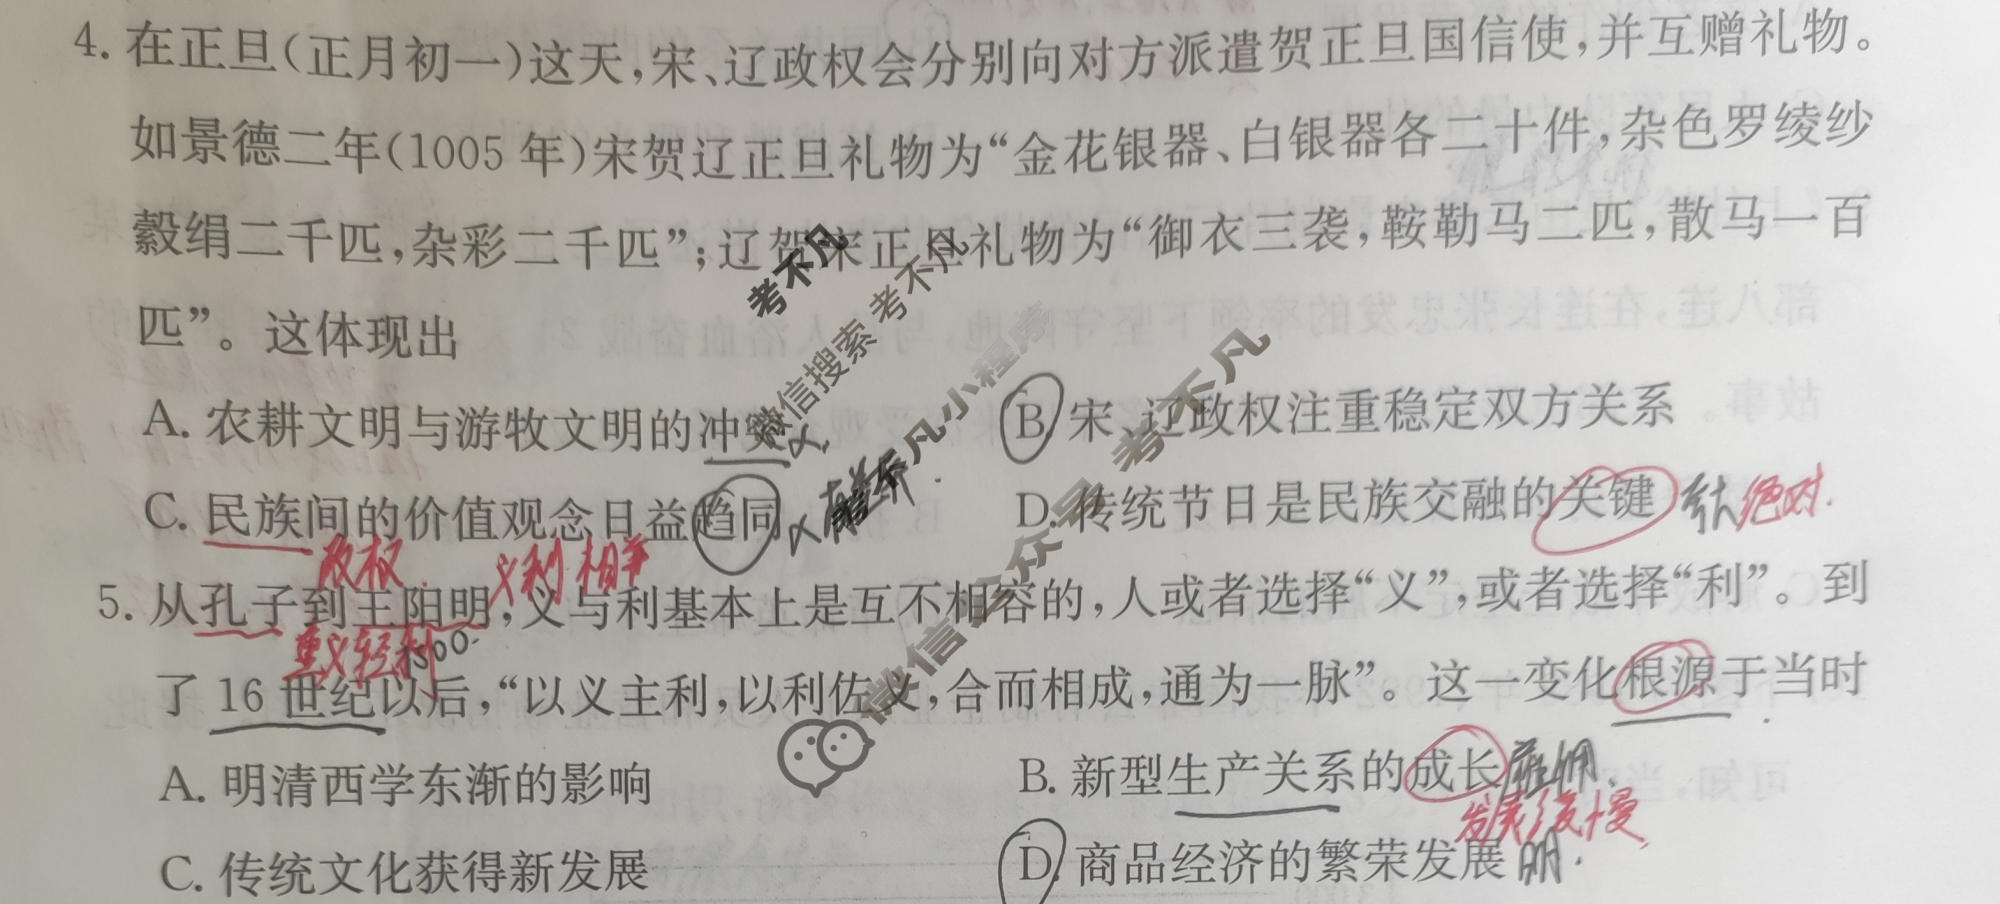 4. 在正旦(正月初一)这天,宋、辽政权会分别向对方派遣贺正旦国信使,并互赠礼物。
如景德二年(1005年)宋贺辽正旦礼物为“金花银器、白银器各二十件,杂色罗绫纱
縠绢二千匹,杂彩二千匹”;辽贺宋正旦礼物为“御衣三袭,鞍勒马二匹,散马一百
匹”。这体现出
A. 农耕文明与游牧文明的冲突
B. 宋、辽政权注重稳定双方关系
C. 民族间的价值观念日益趋同
D. 传统节日是民族交融的关键
绝对.
政权
义利相争
5. 从孔子到王阳明,义与利基本上是互不相容的,人或者选择“义”,或者选择“利”。到
重义轻利
1500
了16世纪以后,“以义主利,以利佐义,合而相成,通为一脉”。这一变化根源于当时
A. 明清西学东渐的影响
B. 新型生产关系的成长
发展缓慢
C. 传统文化获得新发展
D. 商品经济的繁荣发展
明.
考不凡
微信搜索 考不凡
考不凡小程序
微信公众号 考不凡